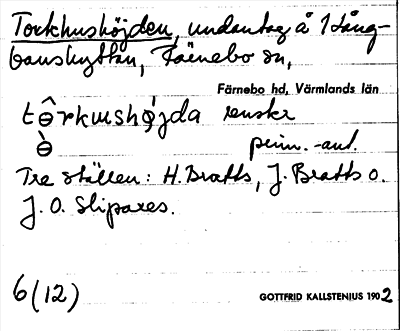 Torkhushöjden, undantag å Lång-
banshyttan, Färnebo sn,
Färnebo hd, Värmlands län
tɵ̂rkɯshø̀jda
ɵ̀
Tre ställen: H. Bratts, J. Bratts o.
J. O. Slipares.
6(12)
GOTTFRID KALLSTENIUS 1902